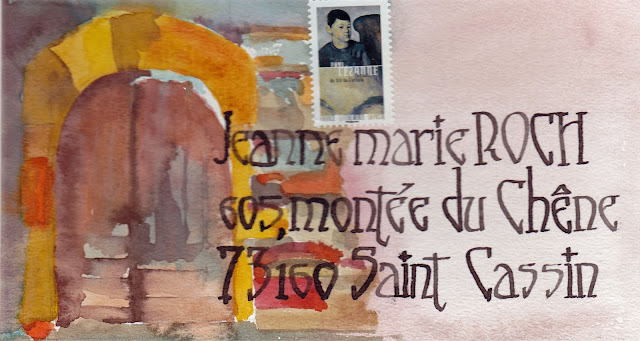 PAUL
CÉZANNE
Jeanne marie ROCH
605, montée du Chêne
73160 Saint Cassin